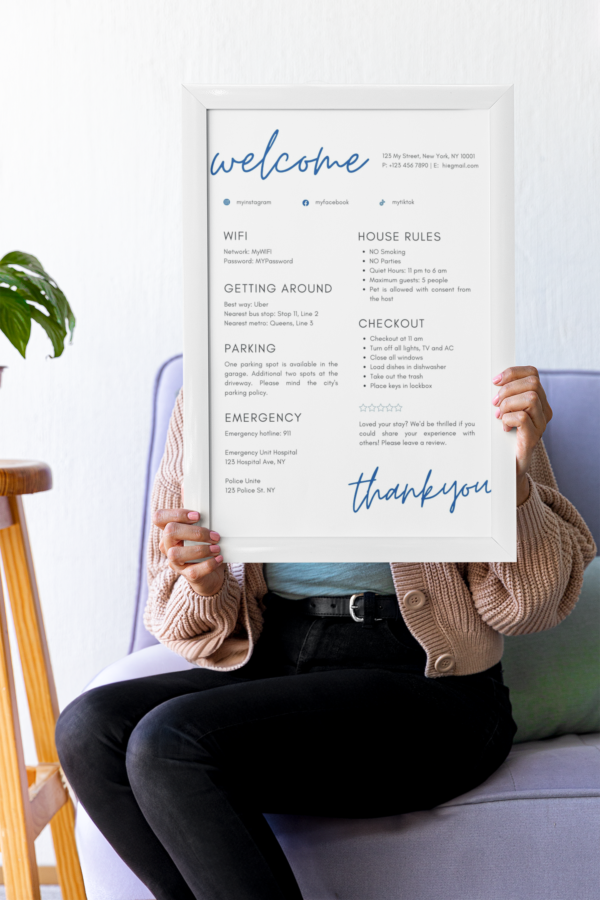 welcome
123 My Street, New York, NY 10001
P: +123 456 7890 | E: hi@gmail.com
myinstagram
myfacebook
mytiktok
WIFI
Network: MyWiFi
Password: MYPassword
GETTING AROUND
Best way: Uber
Nearest bus stop: Stop 11, Line 2
Nearest metro: Queens, Line 3
PARKING
One parking spot is available in the
garage. Additional two spots at the
driveway. Please mind the city's
parking policy.
EMERGENCY
Emergency hotline: 911
Emergency Unit Hospital
123 Hospital Ave, NY
Police Unite
123 Police St. NY
HOUSE RULES
• NO Smoking
• NO Parties
• Quiet Hours: 11 pm to 6 am
• Maximum guests: 5 people
• Pet is allowed with consent from
the host
CHECKOUT
• Checkout at 11 am
• Turn off all lights, TV and AC
• Close all windows
• Load dishes in dishwasher
• Take out the trash
• Place keys in lockbox
Loved your stay? We'd be thrilled if you
could share your experience with
others! Please leave a review.
thankyou